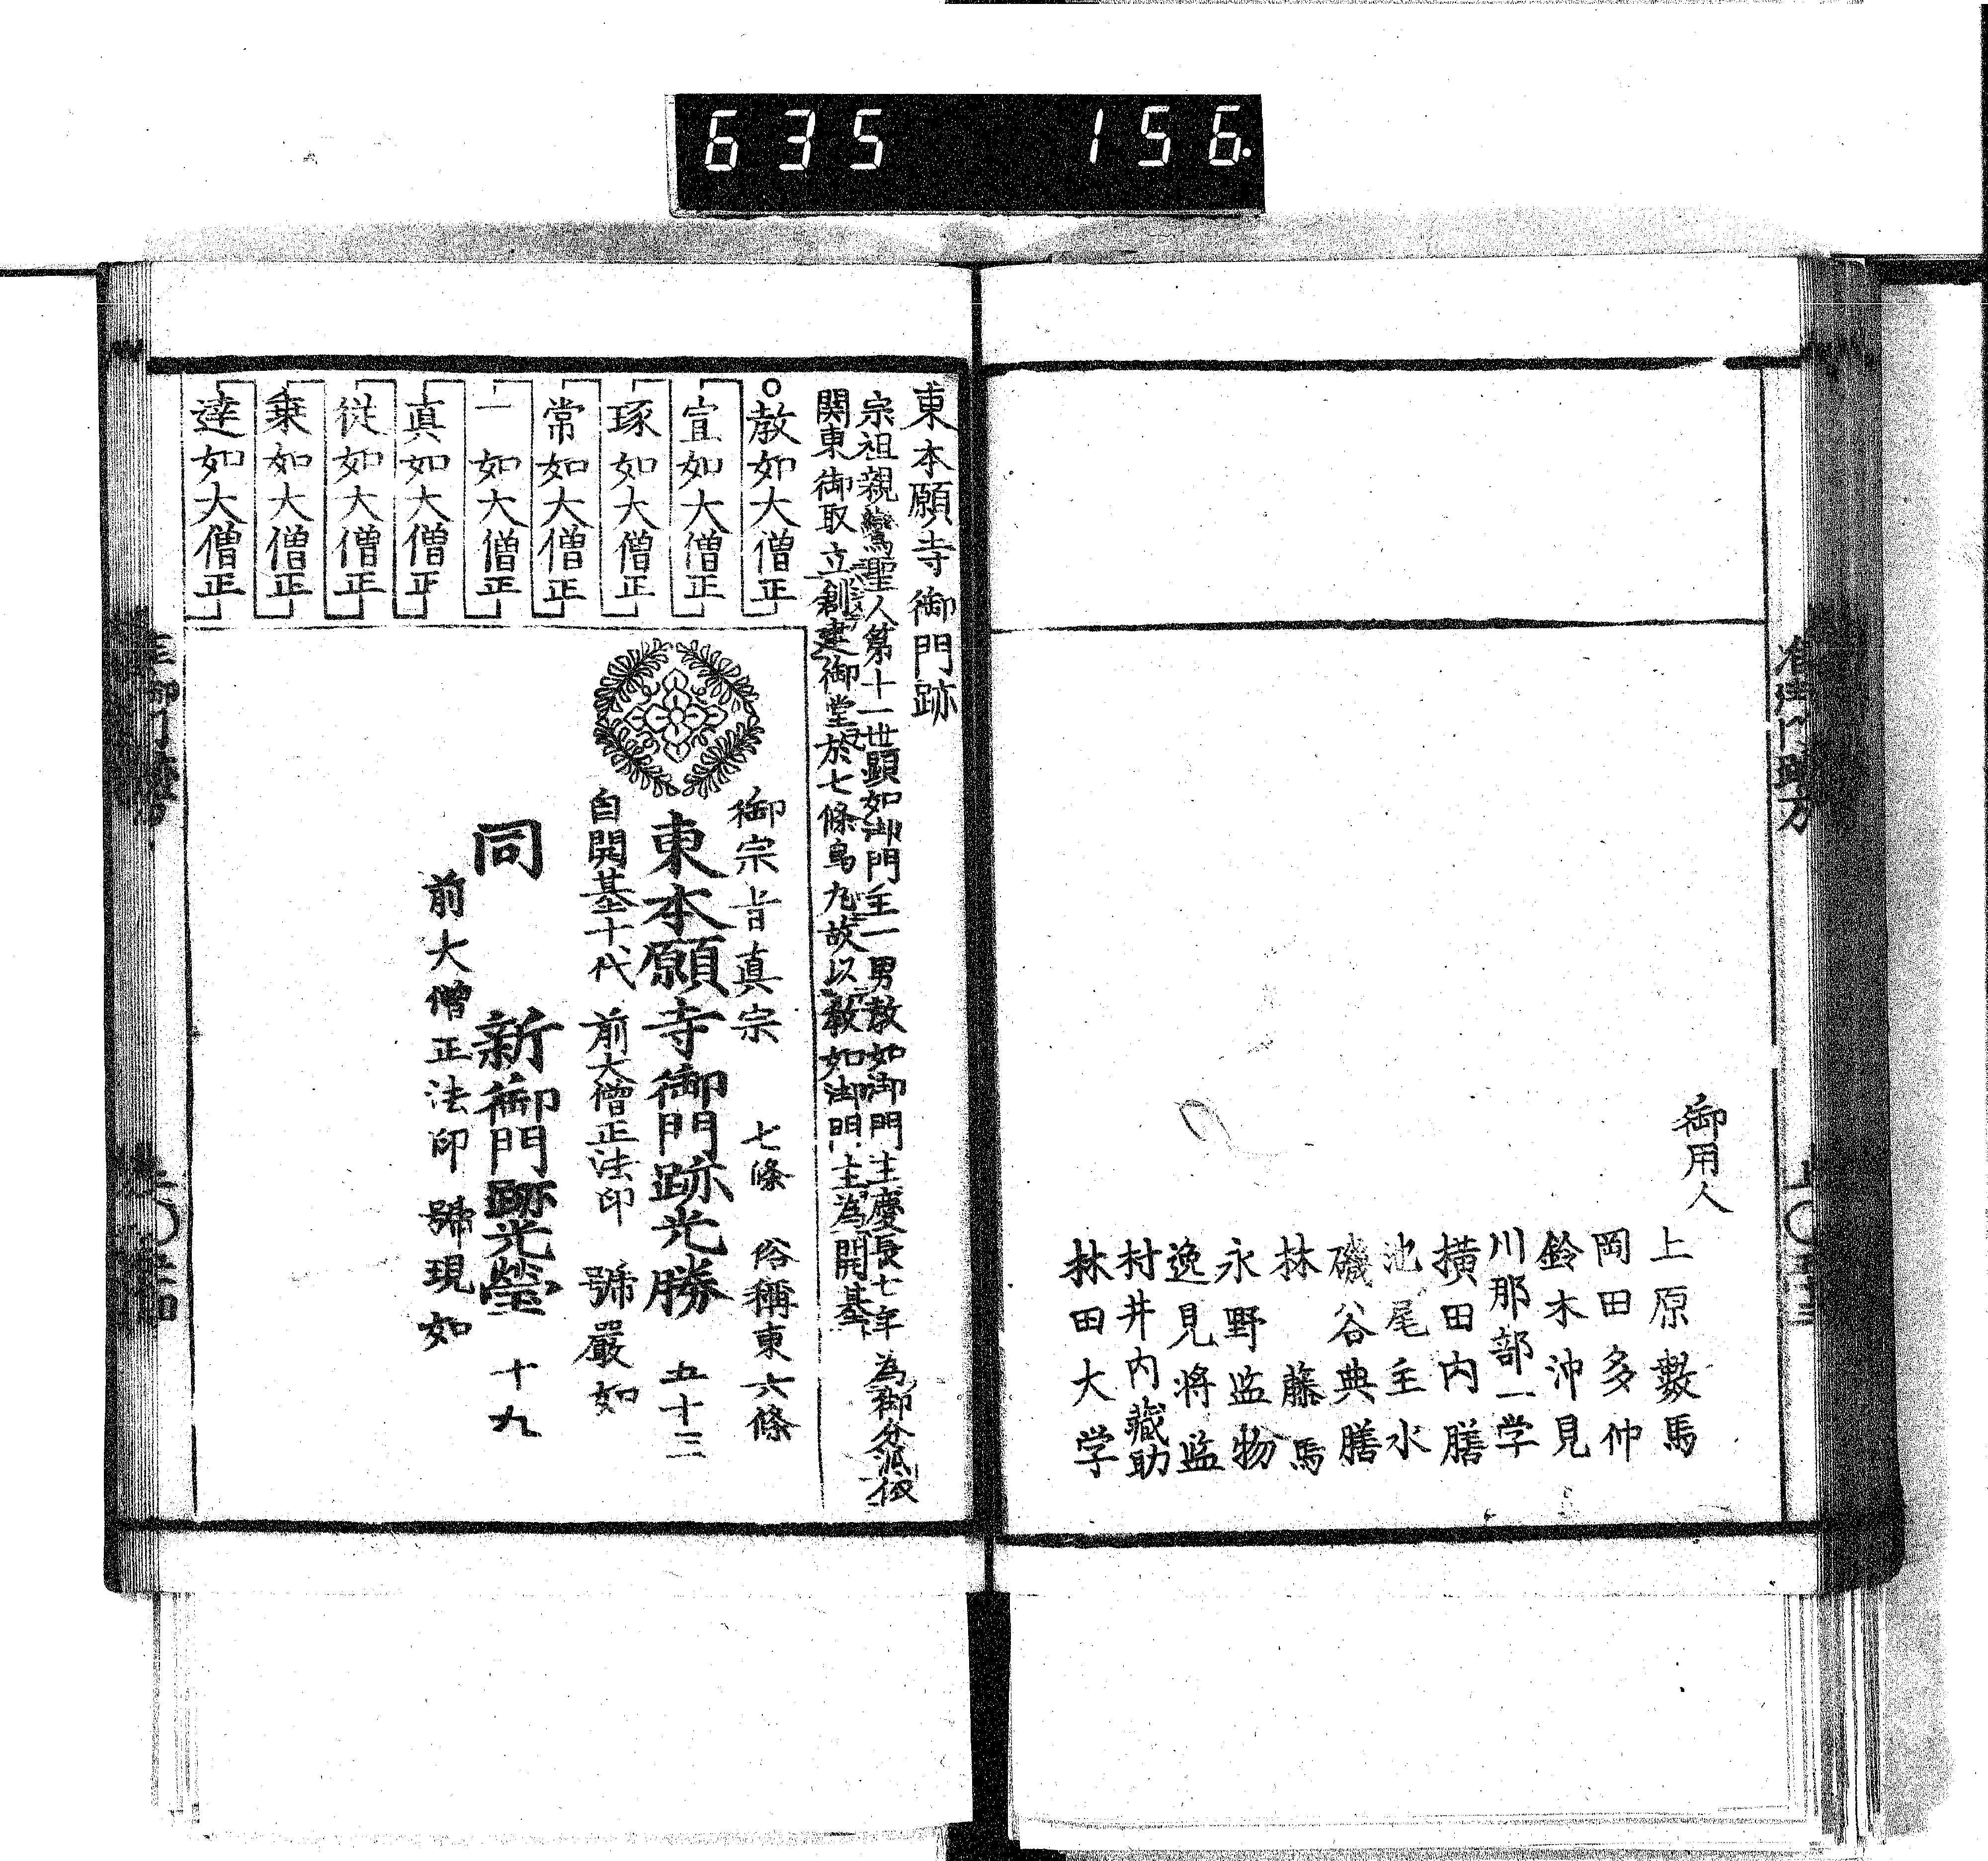 635 156.
准御門跡方
御用人
上原數馬
岡田多仲
鈴木沖見
川那部一学
横田内膳
池尾主水
磯谷典膳
林藤馬
永野监物
逸見将监
村井内藏助
林田大学
東本願寺御門跡
宗祖親鸞聖人第十一世顕如御門主一男教如御門主慶長七年為御分派依
関東御取立創建御堂於七條烏丸故以教如御門主為開基
教如大僧正
宣如大僧正
琢如大僧正
常如大僧正
一如大僧正
真如大僧正
従如大僧正
乗如大僧正
達如大僧正
御宗旨真宗 七條 俗稱東六條
東本願寺御門跡光勝 五十三
自開基十代 前大僧正法印 號嚴如
同 新御門跡光瑩 十九
前大僧正法印 號現如